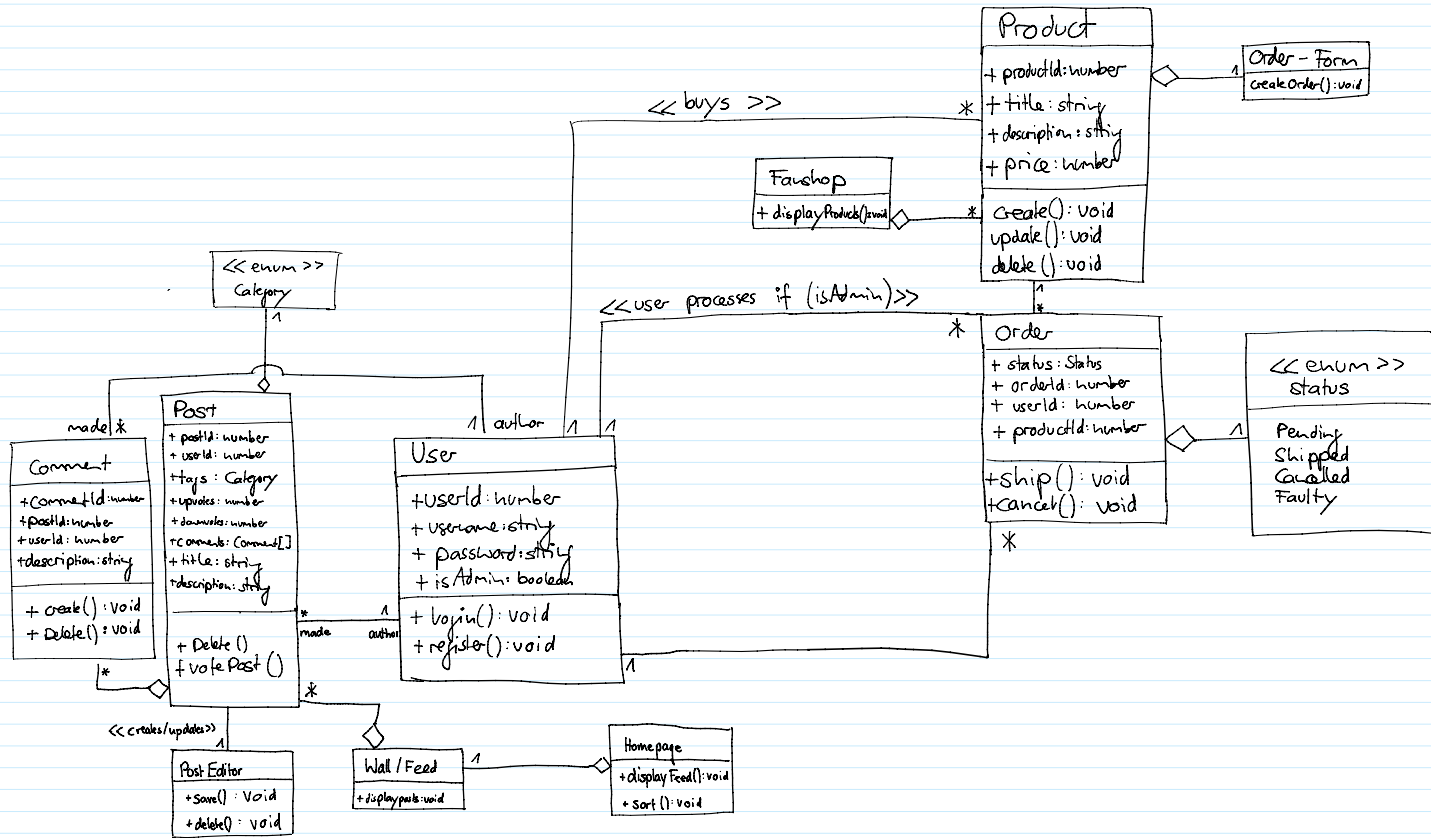 Product
+ productId: number
+ title: string
+ description: string
+ price: number
create(): void
update(): void
delete(): void
Order - Form
createOrder(): void
1
<< buys >>
*
Fanshop
+ displayProducts(): void
*
<< enum >>
Category
1
<<user processes if (isAdmin)>>
*
1
*
Order
+ status: Status
+ orderId: number
+ userId: number
+ productId: number
+ship(): void
+cancel(): void
*
1
<< enum >>
status
Pending
Shipped
Cancelled
Faulty
made *
1 author
1
1
Comment
+CommentId: number
+postId: number
+userId: number
+description: string
+ create(): void
+ Delete(): void
*
Post
+ postId: number
+ userId: number
+tags: Category
+upvotes: number
+downvotes: number
+comments: Comment[]
+ title: string
+description: string
+ Delete()
+ votePost()
*
made
1
author
*
User
+userId: number
+ username: string
+ password: string
+ isAdmin: boolean
+ login(): void
+ register(): void
1
<<creates/updates>>
1
Post Editor
+save(): Void
+delete(): void
Wall / Feed
+displayposts: void
1
Homepage
+displayFeed(): void
+ sort(): void